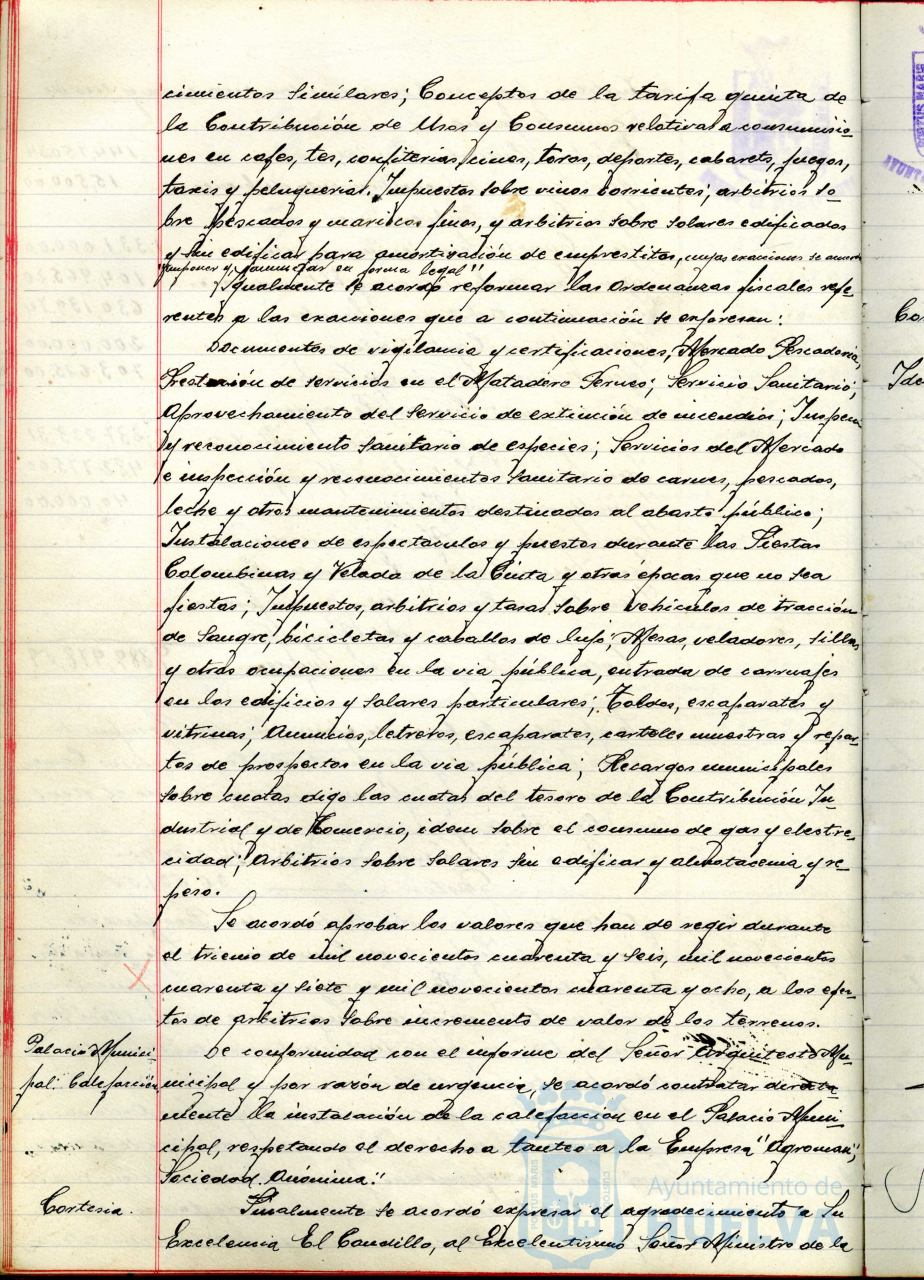 cimientos similares; Conceptos de la tarifa quinta de
la Contribución de Usos y Consumos relativa a consumisio-
nes en cafes, tes, confiterias, cines, toros, deportes, cabarets, juegos,
taxis y peluquerias. Impuestos sobre vinos corrientes; arbitrios so-
bre pescados y mariscos finos, y arbitrios sobre solares edificados
y sin edificar para amortización de emprestitos, cuyas exacciones se acuerda
"imponer y en forma legal"
Igualmente se acordó reformar las ordenanzas fiscales refe-
rentes a las exacciones que a continuación se expresan:
Documentos de vigilancia y certificaciones, Mercado Pescaderia,
Prestación de servicios en el Matadero Ferneo; Servicio Sanitario;
Aprovechamiento del servicio de extinción de incendios; Inspecn
y reconocimiento sanitario de especies; Servicios del Mercado
e inspección y reconocimientos sanitario de carnes, pescados,
leche y otros mantenimientos destinados al abasto público;
Instalaciones de espectaculos y puestos durante las Fiestas
Colombinas y Velada de la Cinta y otras épocas que no sea
fiestas; Impuestos, arbitrios y tasas sobre vehiculos de tracción
de sangre, bicicletas y caballos de lujo; Mesas, veladores, sillas
y otras ocupaciones en la via pública, entrada de carruajes
en los edificios y solares particulares; Toldos, escaparates y
vitrinas; Anuncios, letreros, escaparates, carteles muestras y repar-
tos de prospectos en la via pública; Recargos municipales
sobre cuotas digo las cuotas del tesoro de la Contribución In-
dustrial y de Comercio, idem sobre el consumo de gas y electre-
cidad; Arbitrios sobre solares sin edificar y almotacenia y re-
peso.
Se acordó aprobar los valores que han de regir durante
el trienio de mil novecientos cuarenta y seis, mil novecientos
cuarenta y siete y mil novecientos cuarenta y ocho, a los efec-
tos de arbitrios sobre incremento de valor de los terrenos.
Palacio Munici-
pal: Calefacción
De conformidad con el informe del Señor Arquitecto Mu-
nicipal y por razón de urgencia, se acordó contratar directa-
mente la instalación de la calefaccion en el Palacio Muni-
cipal, respetando el derecho a tanteo a la Empresa "Agroman",
Sociedad Anónima."
Cortesia.
Finalmente se acordó expresar el agradecimiento a Su
Excelencia El Caudillo, al Excelentisimo Señor Ministro de la
Ayuntamiento de
HUELVA